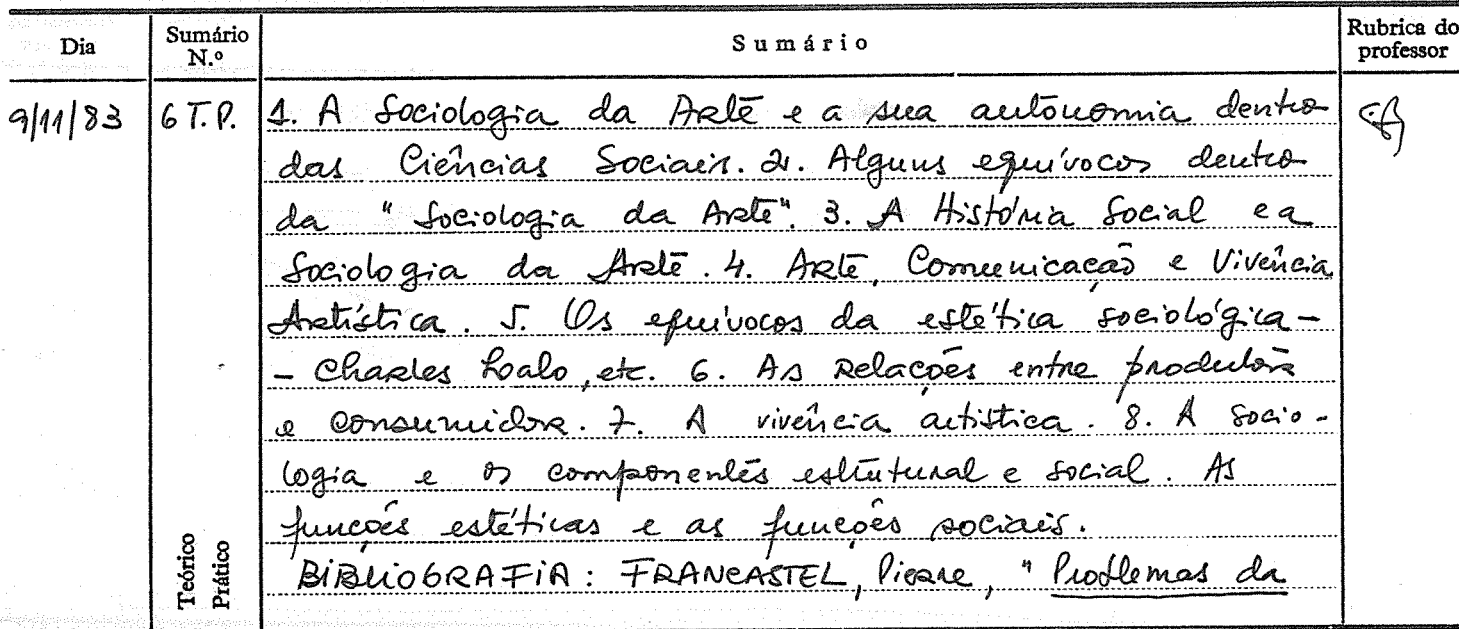 Dia Sumário N.º Sumário Rubrica do professor
9/11/83 6 T.P. 1. A Sociologia da Arte e a sua autonomia dentro
das Ciências Sociais. 2. Alguns equívocos dentro
da "Sociologia da Arte". 3. A História Social e a
Sociologia da Arte. 4. Arte, Comunicação e Vivência
Artística. 5. Os equívocos da estética sociológica -
- Charles Lalo, etc. 6. As Relações entre produtor
e consumidor. 7. A vivência artística. 8. A socio-
logia e os componentes estrutural e social. As
funções estéticas e as funções sociais.
BIBLIOGRAFIA: FRANCASTEL, Pierre, "Problemas da
Teórico
Prático